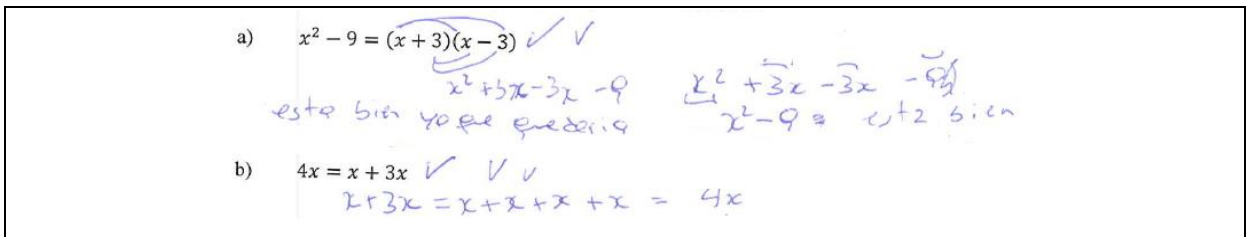 a) x² − 9 = (x + 3)(x − 3) ✓ V
x² + 3x − 3x − 9 x² + 3x − 3x − 9
esta bien ya que quedaria x² − 9 = esta bien
b) 4x = x + 3x ✓ V V
x + 3x = x + x + x + x = 4x